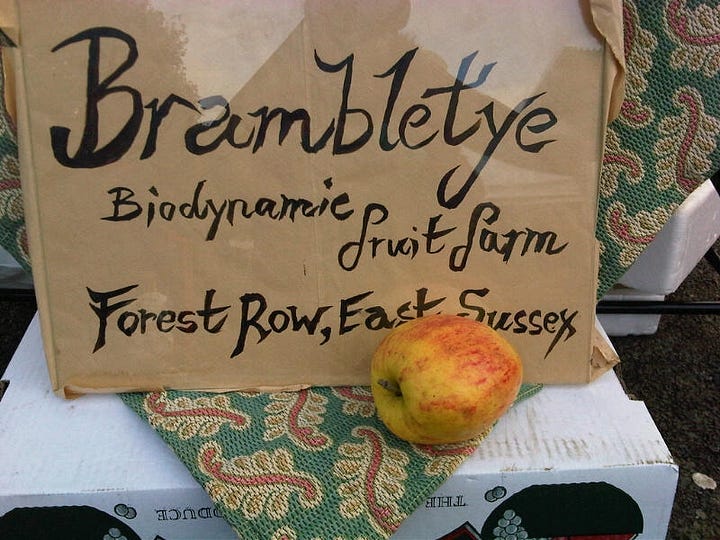 Brambletye
Biodynamic
fruit farm
Forest Row, East Sussex
THE
PRODUCE